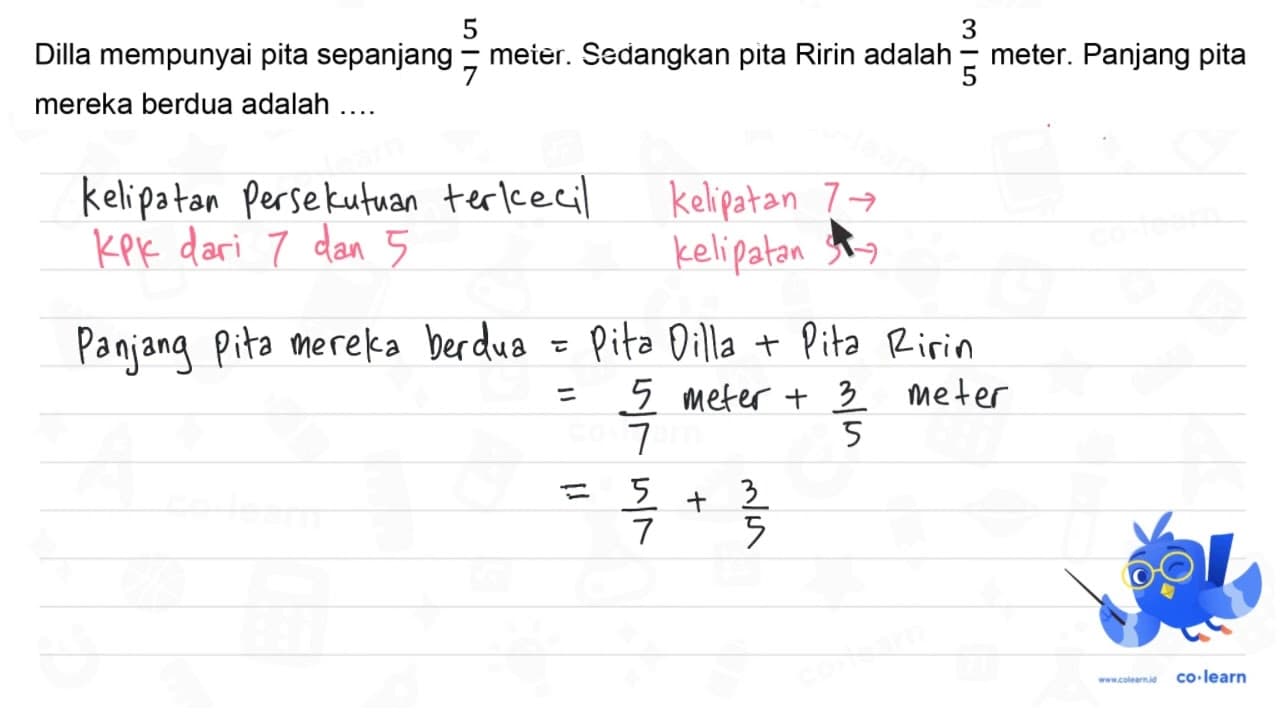 Dilla mempunyai pita sepanjang 5/7 meter. Sedangkan pita Ririn adalah 3/5 meter. Panjang pita
mereka berdua adalah ....
Kelipatan Persekutuan terkecil
KPK dari 7 dan 5
kelipatan 7 →
kelipatan 5 →
Panjang Pita mereka berdua = Pita Dilla + Pita Ririn
= 5/7 meter + 3/5 meter
= 5/7 + 3/5
www.colearn.id co·learn